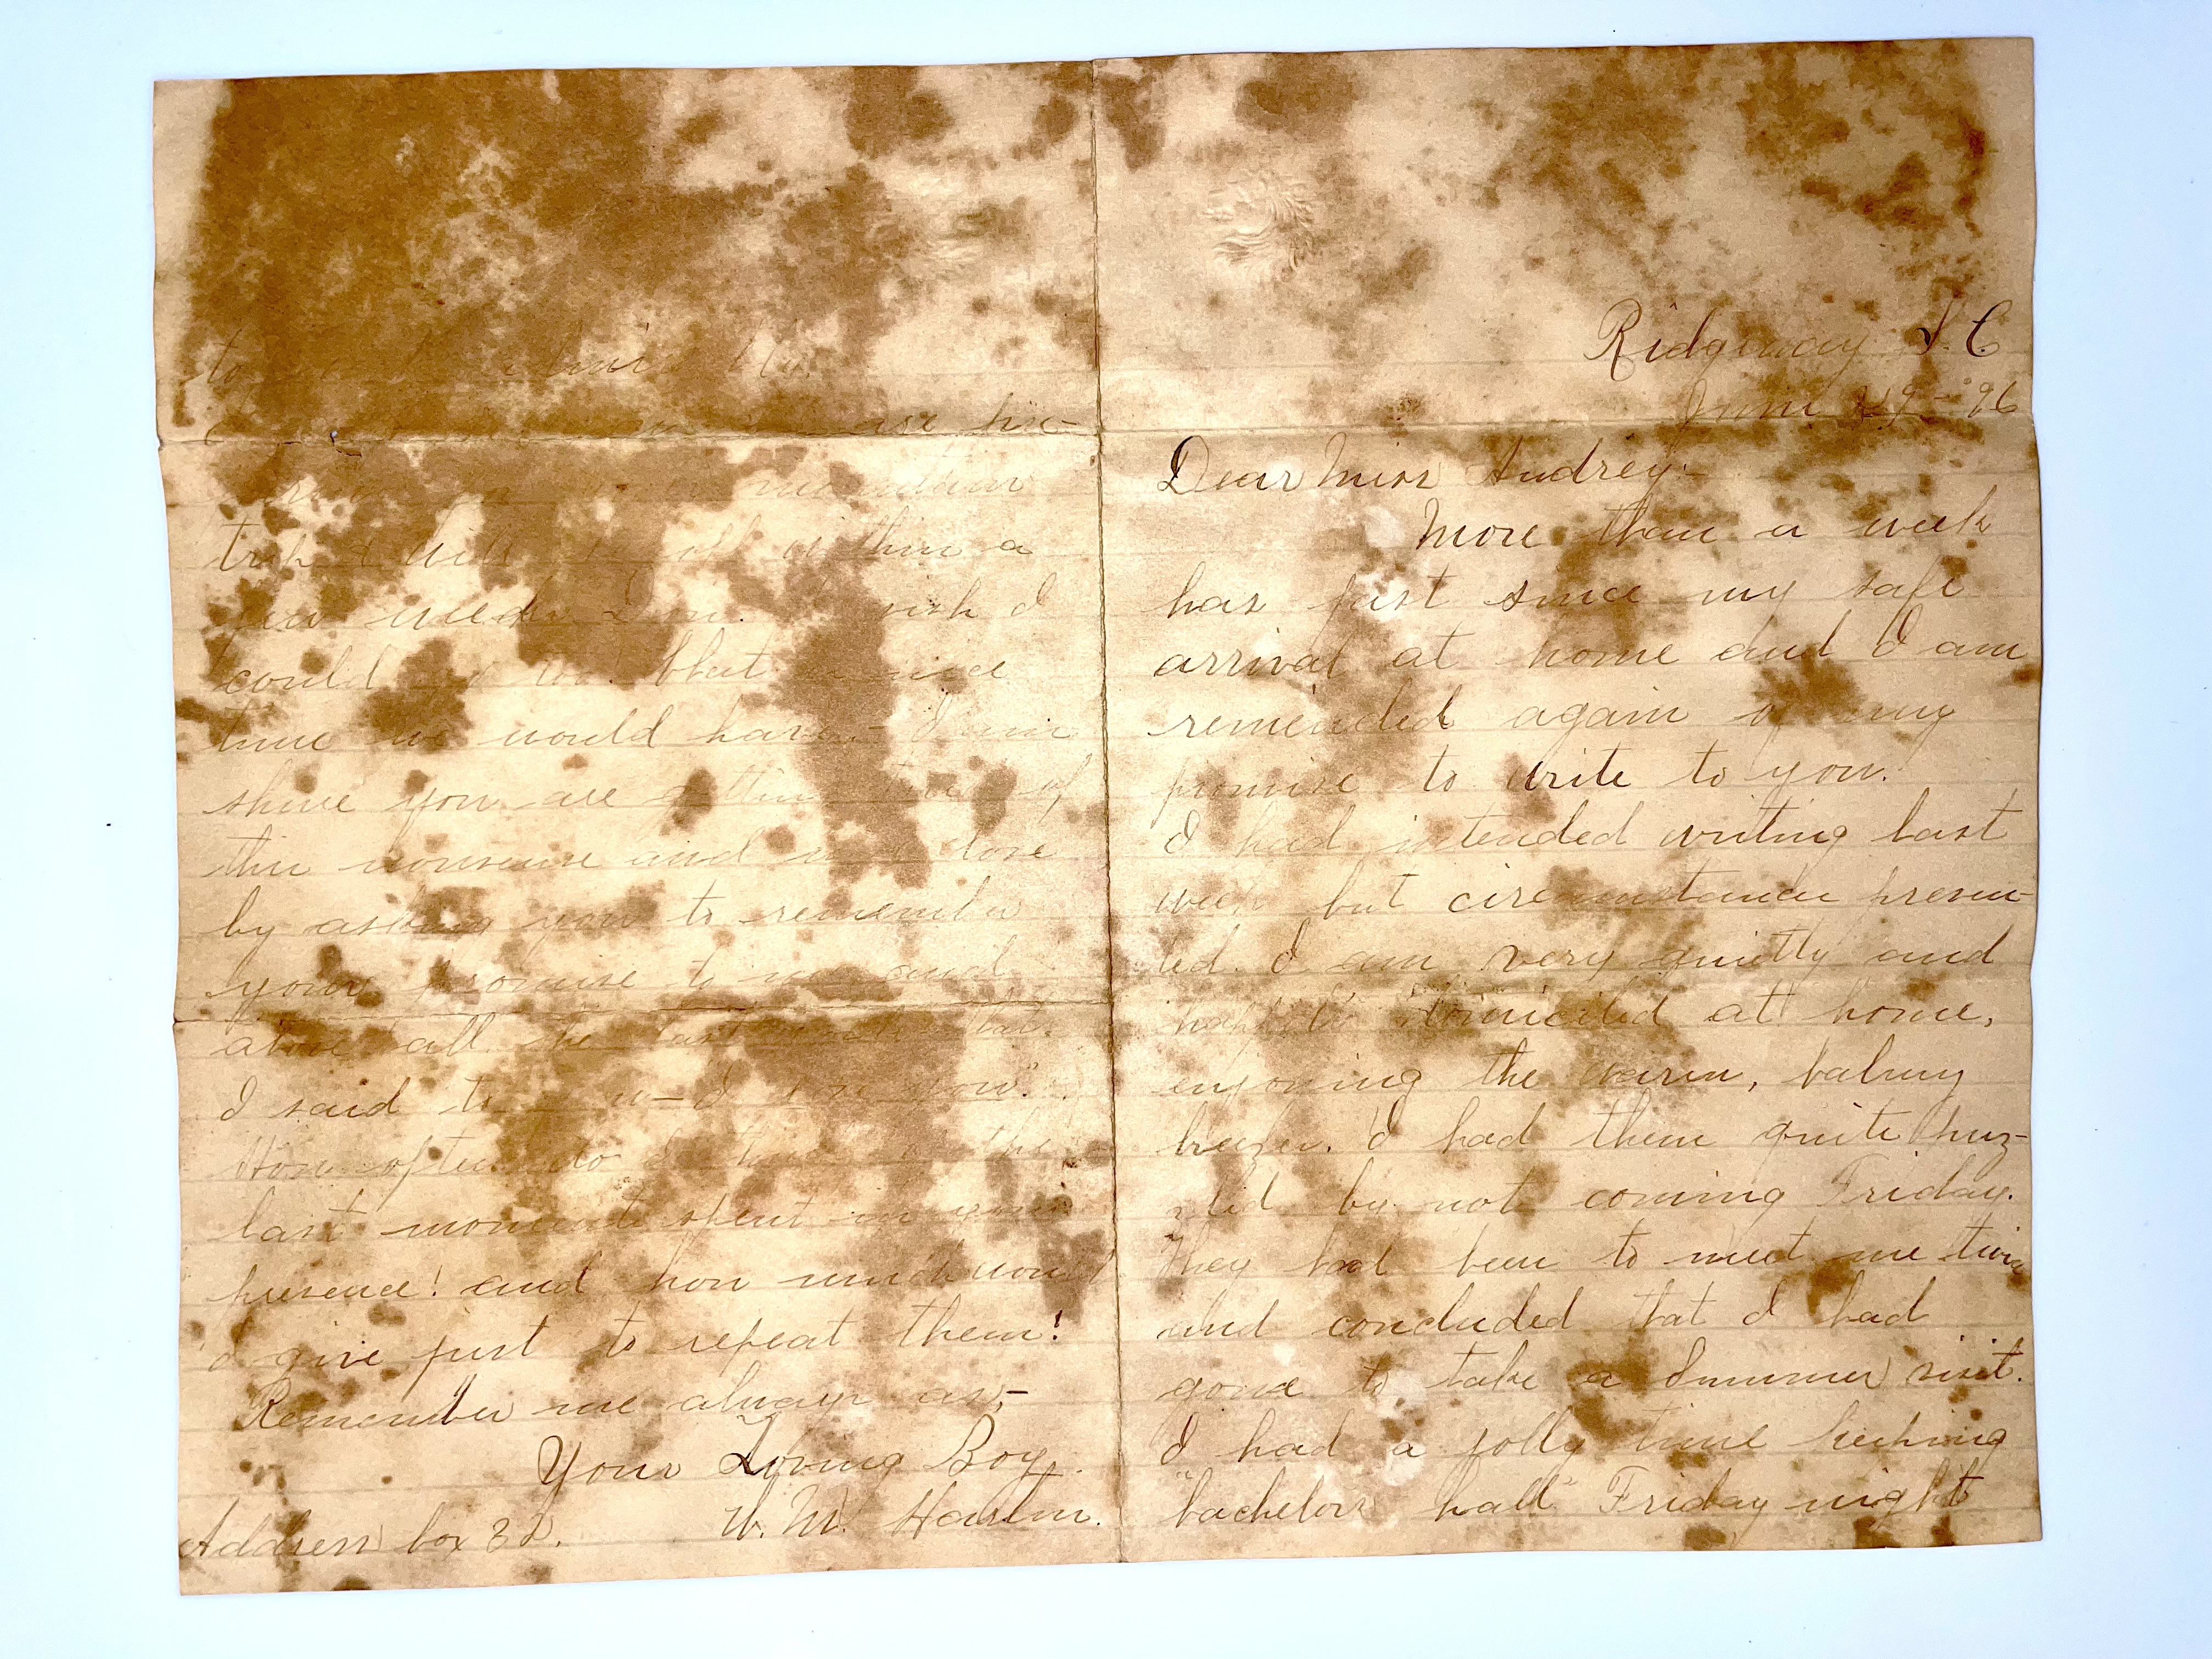 Ridgeway S.C
June 29-96
Dear Miss Audrey:-
More than a week
has past since my safe
arrival at home and I am
reminded again of my
promise to write to you.
I had intended writing last
week but circumstances preven-
ted. I am very quietly and
happily domiciled at home,
enjoying the warm, balmy
breezes. I had them quite puz-
zled by not coming Friday.
They had been to meet me twice
and concluded that I had
gone to take a Summer visit.
I had a jolly time keeping
"bachelors hall" Friday night
to
are
mountain
trip I will within a
few weeks wish I
could What a nice
time we would have - I am
shure you are getting tired of
this nonsense and will close
by asking you to remember
your promise to me and
above all the last words that
I said to you - I love you".
How often do I think of the
last moments spent in your
presence! and how much would
I give just to repeat them!
Remember me always as,-
Your Loving Boy
W. M.
Address box 32.